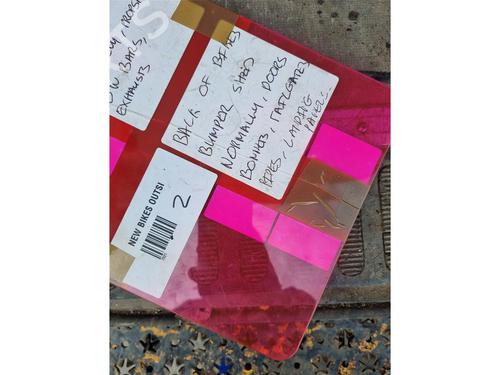 TOW BARS,
EXHAUSTS
BACK OF BIKES
BUMPER SHED
NORMALLY, DOORS
BONNETS, TAILGATES
PIPES, LANDING
PANELS
NEW BIKES OUTSI
2